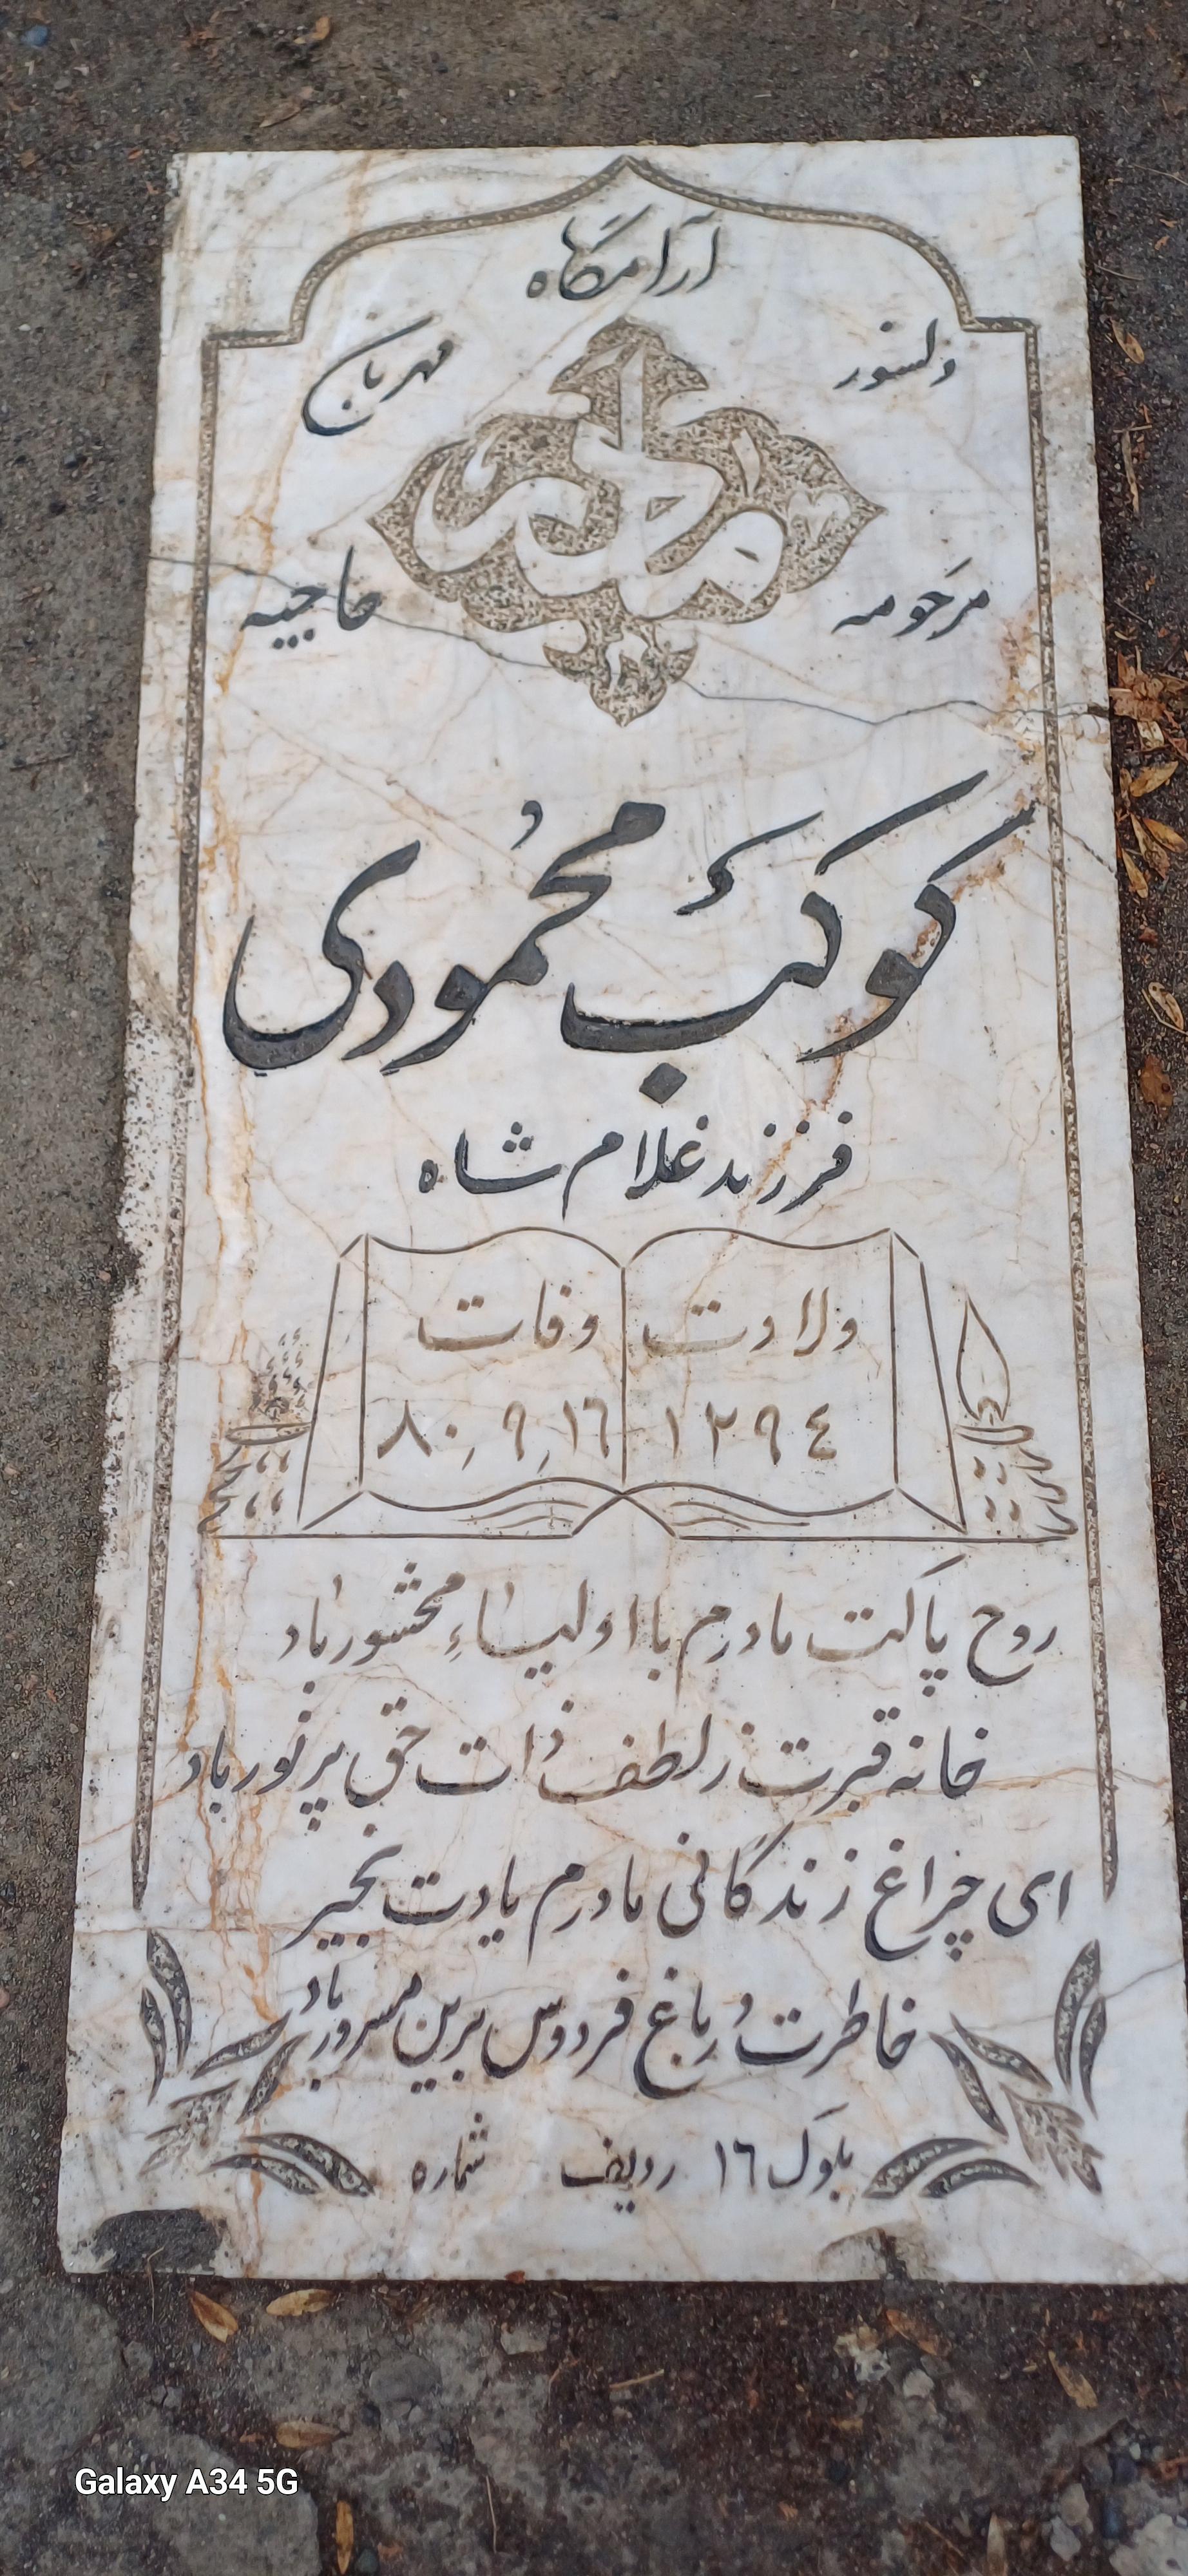 آرامگاه
دلسوز مهربان
مادر
مرحومه حاجیه
کوکب محمودی
فرزند غلامشاه
ولادت وفات
١٢٩٤ ٨٠,٩,١٦
روح پاکت مادرم با اولیاءِ محشور باد
خانه قبرت ز لطف ذات حق پرنور باد
ای چراغ زندگانی مادرم یادت بخیر
خاطرت در باغ فردوس برین مسرور باد
بلوک ١٦ ردیف شماره
Galaxy A34 5G